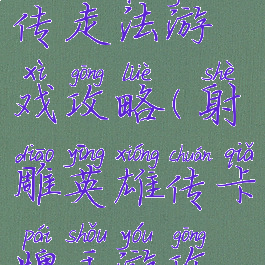 传走法游
xì gōng lüè shè
戏攻略(射
diāo yīng xióng chuán qiǎ
雕英雄传卡
pái shǒu yóu gōng
牌手游攻